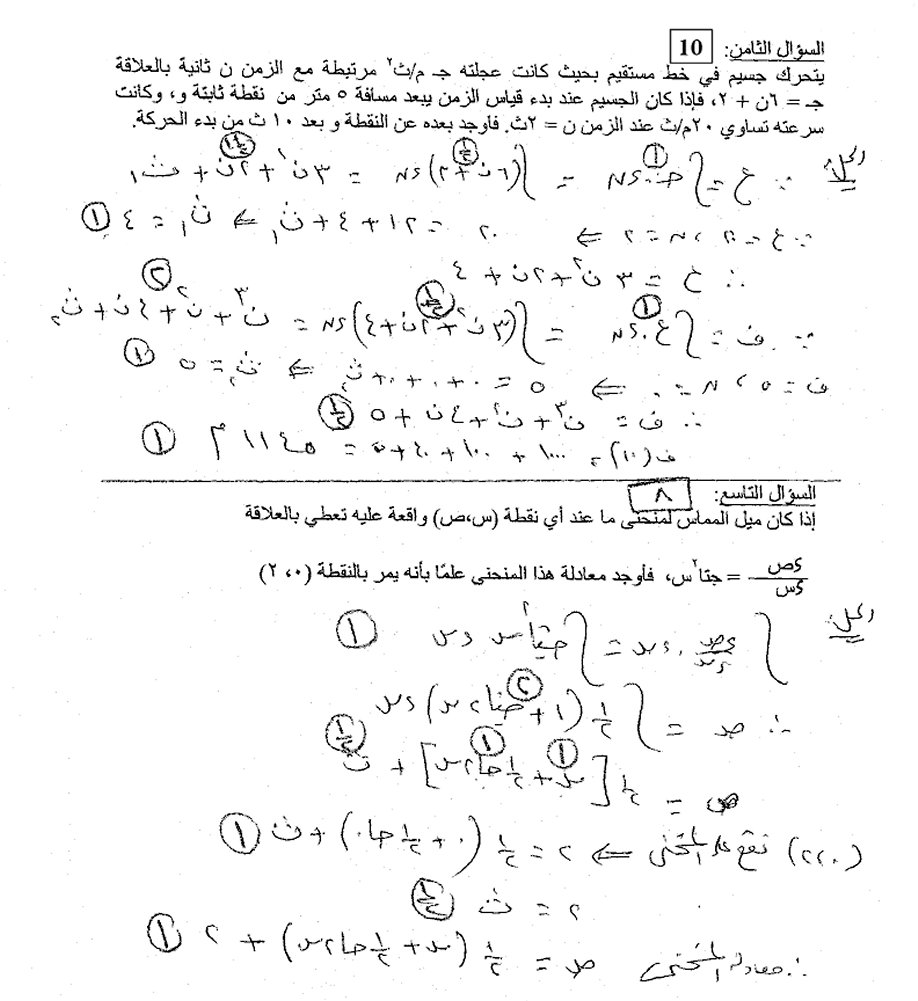 السؤال الثامن: 10
يتحرك جسيم في خط مستقيم بحيث كانت عجلته جـ م/ث٢ مرتبطة مع الزمن ن ثانية بالعلاقة
جـ = ٦ن + ٢، فإذا كان الجسيم عند بدء قياس الزمن يبعد مسافة ٥ متر من نقطة ثابتة و، وكانت
سرعته تساوي ٢٠م/ث عند الزمن ن = ٢ث. فاوجد بعده عن النقطة و بعد ١٠ ث من بدء الحركة.
الحل: ∵ ع = ∫ جـ.ءن ① = ∫(٦ن+٢)ءن = ٣ن٢ + ٢ن + ث١
∵ ع = ٢٠، ن = ٢ ⇐ ٢٠ = ١٢ + ٤ + ث١ ⇐ ث١ = ٤ ①
∴ ع = ٣ن٢ + ٢ن + ٤
∵ ف = ∫ ع.ءن ① = ∫(٣ن٢ + ٢ن + ٤)ءن = ن٣ + ن٢ + ٤ن + ث٢ ②
ف = ٥، ن = ٠ ⇐ ٥ = ٠ + ٠ + ٠ + ث٢ ⇐ ث٢ = ٥ ①
∴ ف = ن٣ + ن٢ + ٤ن + ٥
ف(١٠) = ١٠٠٠ + ١٠٠ + ٤٠ + ٥ = ١١٤٥ م ①
السؤال التاسع: ٨
إذا كان ميل المماس لمنحنى ما عند أي نقطة (س،ص) واقعة عليه تعطي بالعلاقة
ءص/ءس = جتا٢س، فأوجد معادلة هذا المنحنى علمًا بأنه يمر بالنقطة (٠، ٢)
الحل: ∫ ءص/ءس . ءس = ∫ جتا٢س ءس ①
∴ ص = ∫ ١/٢ (١ + جتا٢س) ءس ②
ص = ١/٢ [س ① + ١/٢ جا٢س ①] + ث (١/٢)
(٢،٠) تقع على المنحنى ⇐ ٢ = ١/٢ (٠ + ١/٢ جا٠) + ث ①
٢ = ث (١/٢)
∴ معادلة المنحنى ص = ١/٢ (س + ١/٢ جا٢س) + ٢ ①